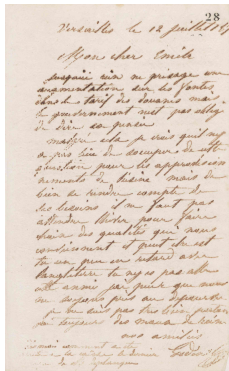 28
Versailles le 12 juillet 187
Mon cher Emile
jusqu'ici rien ne présage une
augmentation sur les fontes
dans le tarif des douanes mais
le gouvernement n'est pas obligé
de dire sa pensée
malgré cela je crois qu'il n'y
a pas lieu de s'occuper de cette
question pour les approvision
nements de l'usine mais de
bien se rendre compte de
ses besoins il ne faut pas
attendre l'hiver pour faire
choix des qualités qui nous
conviennent et peut être est
tu un peu en retard avec
l'angleterre tu n'y es pas allé
cette année par
je ne suis pas très bien portant
toujours des maux de reins
mes amitiés
Godin